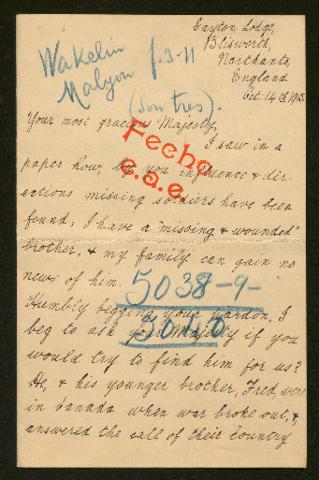 Gayton Lodge,
Blisworth,
Northants,
England
Oct. 14th 1915.
Wakelin
Malyon
f. 3-11
(son tres).
Your most gracious Majesty,
I saw in a
paper how, by you influence & dir-
ections missing soldiers have been
found; I have a "missing & wounded"
brother, & my family can gain no
news of him.
Fecho
e.s.e.
5038-9-
Humbly begging your pardon, I
beg to ask your Majesty if you
would try to find him for us?
He, & his younger brother, Fred, were
in Canada when war broke out, &
answered the call of their country